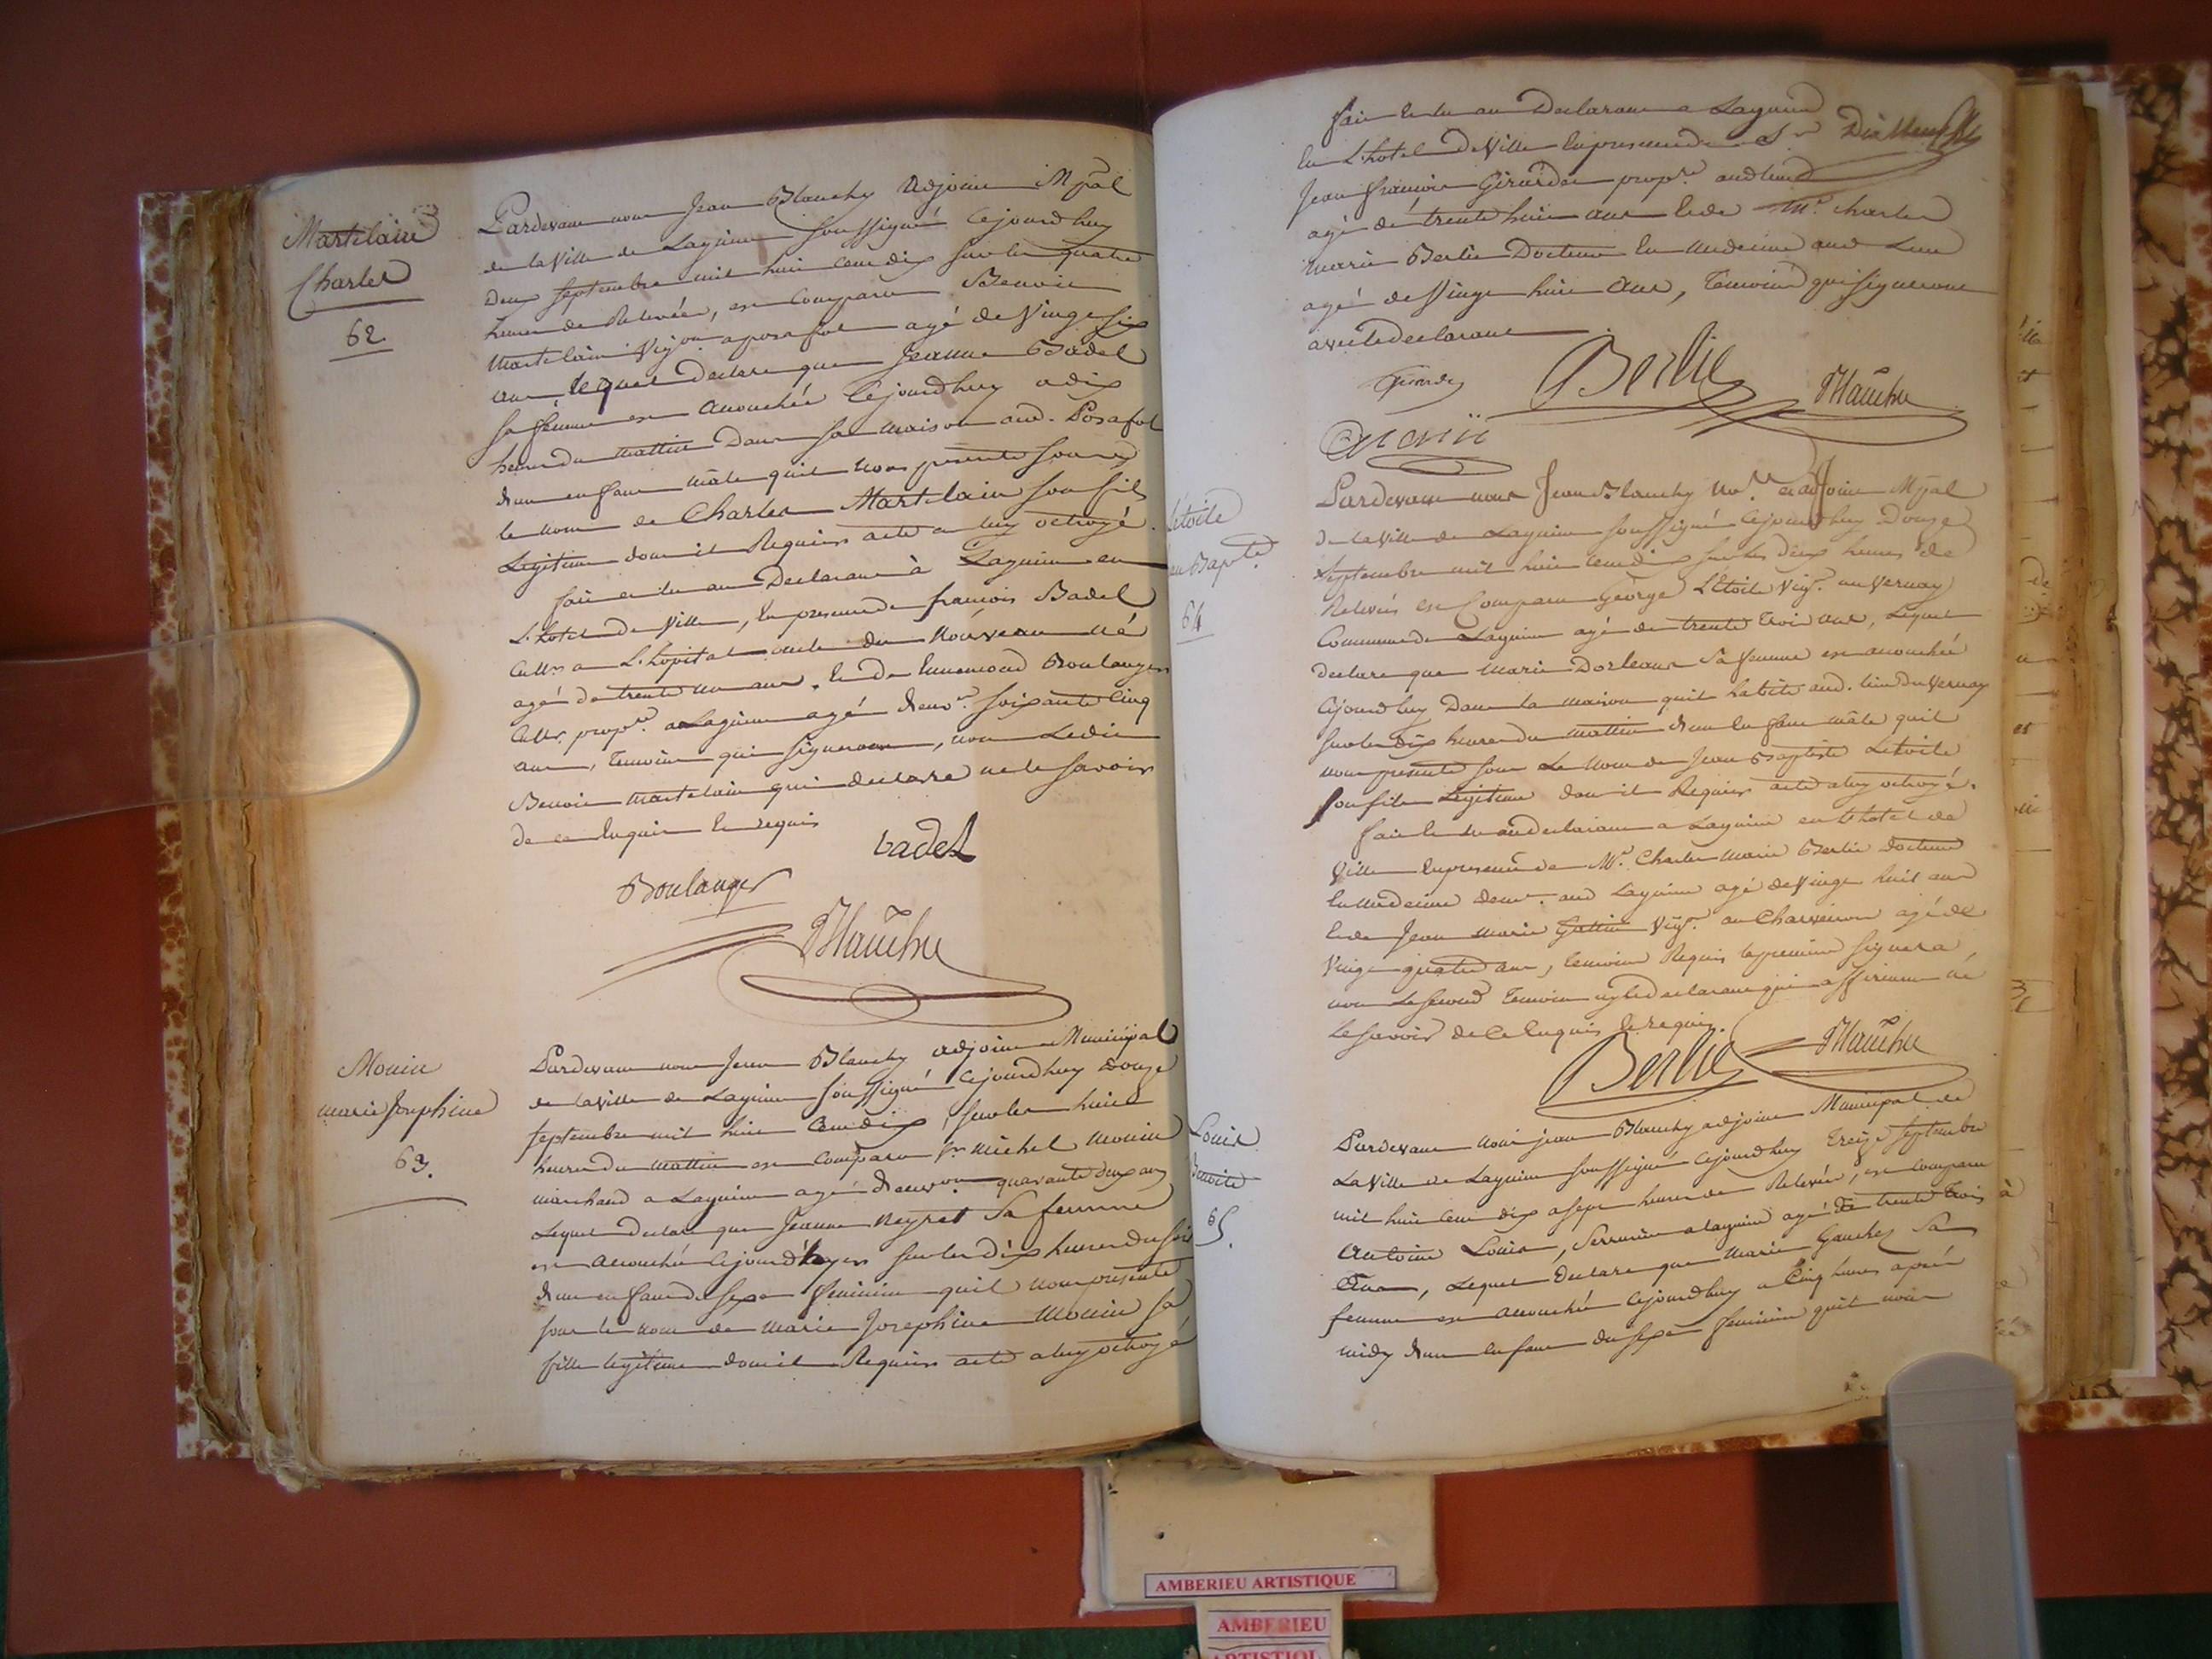 Martelain
Charles
62
Pardevant nous Jean Blanchy adjoint Mpal
de la Ville de Lagnieu soussigné Cejourdhuy
Deux septembre mil huit cent dix sur les quatre
heures de Relevée, est Comparu Benoit
Martelain Vign. a posafol agé de Vingt six
ans lequel Declare que Jeanne Badel
sa femme est accouchée Cejourdhuy a dix
heures du mattin Dans sa maison aud. Posafol
dun enfant mâle quil nous presente sous
le nom de Charles Martelain son fils
Legitime dont il Requiert acte a luy octroyé.
fait et lu au Declarant à Lagnieu en
L'hotel de Ville, en presence de françois Badel
Cultr a L'hopital oncle du Nouveau né
agé de trente un ans, et de Ennemond Boulanger
Cultr. propre. a Lagnieu agé d'envn. soixante Cinq
ans, Temoins qui signeront, non Ledit
Benoit Martelain qui declare ne le savoir
de ce Enquis et requis
badel
Boulanger
Blanchy
Monin
marie Josephine
63.
Pardevant nous Jean Blanchy adjoint Municipal
de la Ville de Lagnieu soussigné Cejourdhuy Douze
septembre mil huit Cent dix, sur les huit
heures du mattin est comparu Sr Michel Monin
marchand a Lagnieu agé d'environ quarante deux ans
Lequel declare que Jeanne Neyret Sa femme
est accouchée Cejourd'hyer sur les dix heures du soir
dun enfant du sexe feminin quil nous presente
sous le nom de Marie Josephine Monin sa
fille legitime dont il Requiert acte a luy octroyé
fait et lu au Declarant a Lagnieu
en L'hotel de Ville en presence de Sr
Jean françois Girardet propre. aud lieu
agé de trente huit ans et de Mr. Charles
Marie Berlie Docteur En Medecine aud Lieu
agé de Vingt huit ans, Temoins qui signeront
avec le declarant
Berlie
Blanchy
Monin
Létoile
64
Pardevant nous Jean Blanchy Nore. et adjoint Mpal
de la Ville de Lagnieu soussigné Cejourdhuy Douze
septembre mil huit Cent dix sur les deux heures de
Relevée est Comparu George L'Etoile Vign. au Vernay
Commune de Lagnieu agé de trente trois ans, Lequel
declare que Marie Dorleans Sa femme est accouchée
Cejourdhuy Dans la maison quil habite aud. lieu du Vernay
sur les dix heures du mattin dun Enfant mâle quil
nous presente sous Le Nom de Jean Baptiste Létoile
son fils Legitime dont il Requiert acte a luy octroyé.
fait et lu au declarant a Lagnieu en L'hotel de
Ville en presence de Mr. Charles Marie Berlie docteur
En Medecine demt. aud Lagnieu agé de Vingt huit ans
et de Jean Marie Gattin Vign. au Charveiron agé de
Vingt quatre ans, temoins Requis le premier signera
non Le second Temoin ny le declarant qui affirment ne
le savoir de ce Enquis et requis.
Berlie
Blanchy
Louis
Benoite
65.
Pardevant Nous jean Blanchy adjoint Municipal de
La Ville de Lagnieu soussigné Cejourdhuy Treize septembre
mil huit Cent dix a sept heures de Relevée, est Comparu
Antoine Louis, Serrurier a lagnieu agé de trente trois
Ans, Lequel Declare que Marie Gauchez Sa
femme est accouchée Cejourdhuy a Cinq heures après
midy dun Enfant du sexe feminin quil nous
AMBERIEU ARTISTIQUE
AMBERIEU